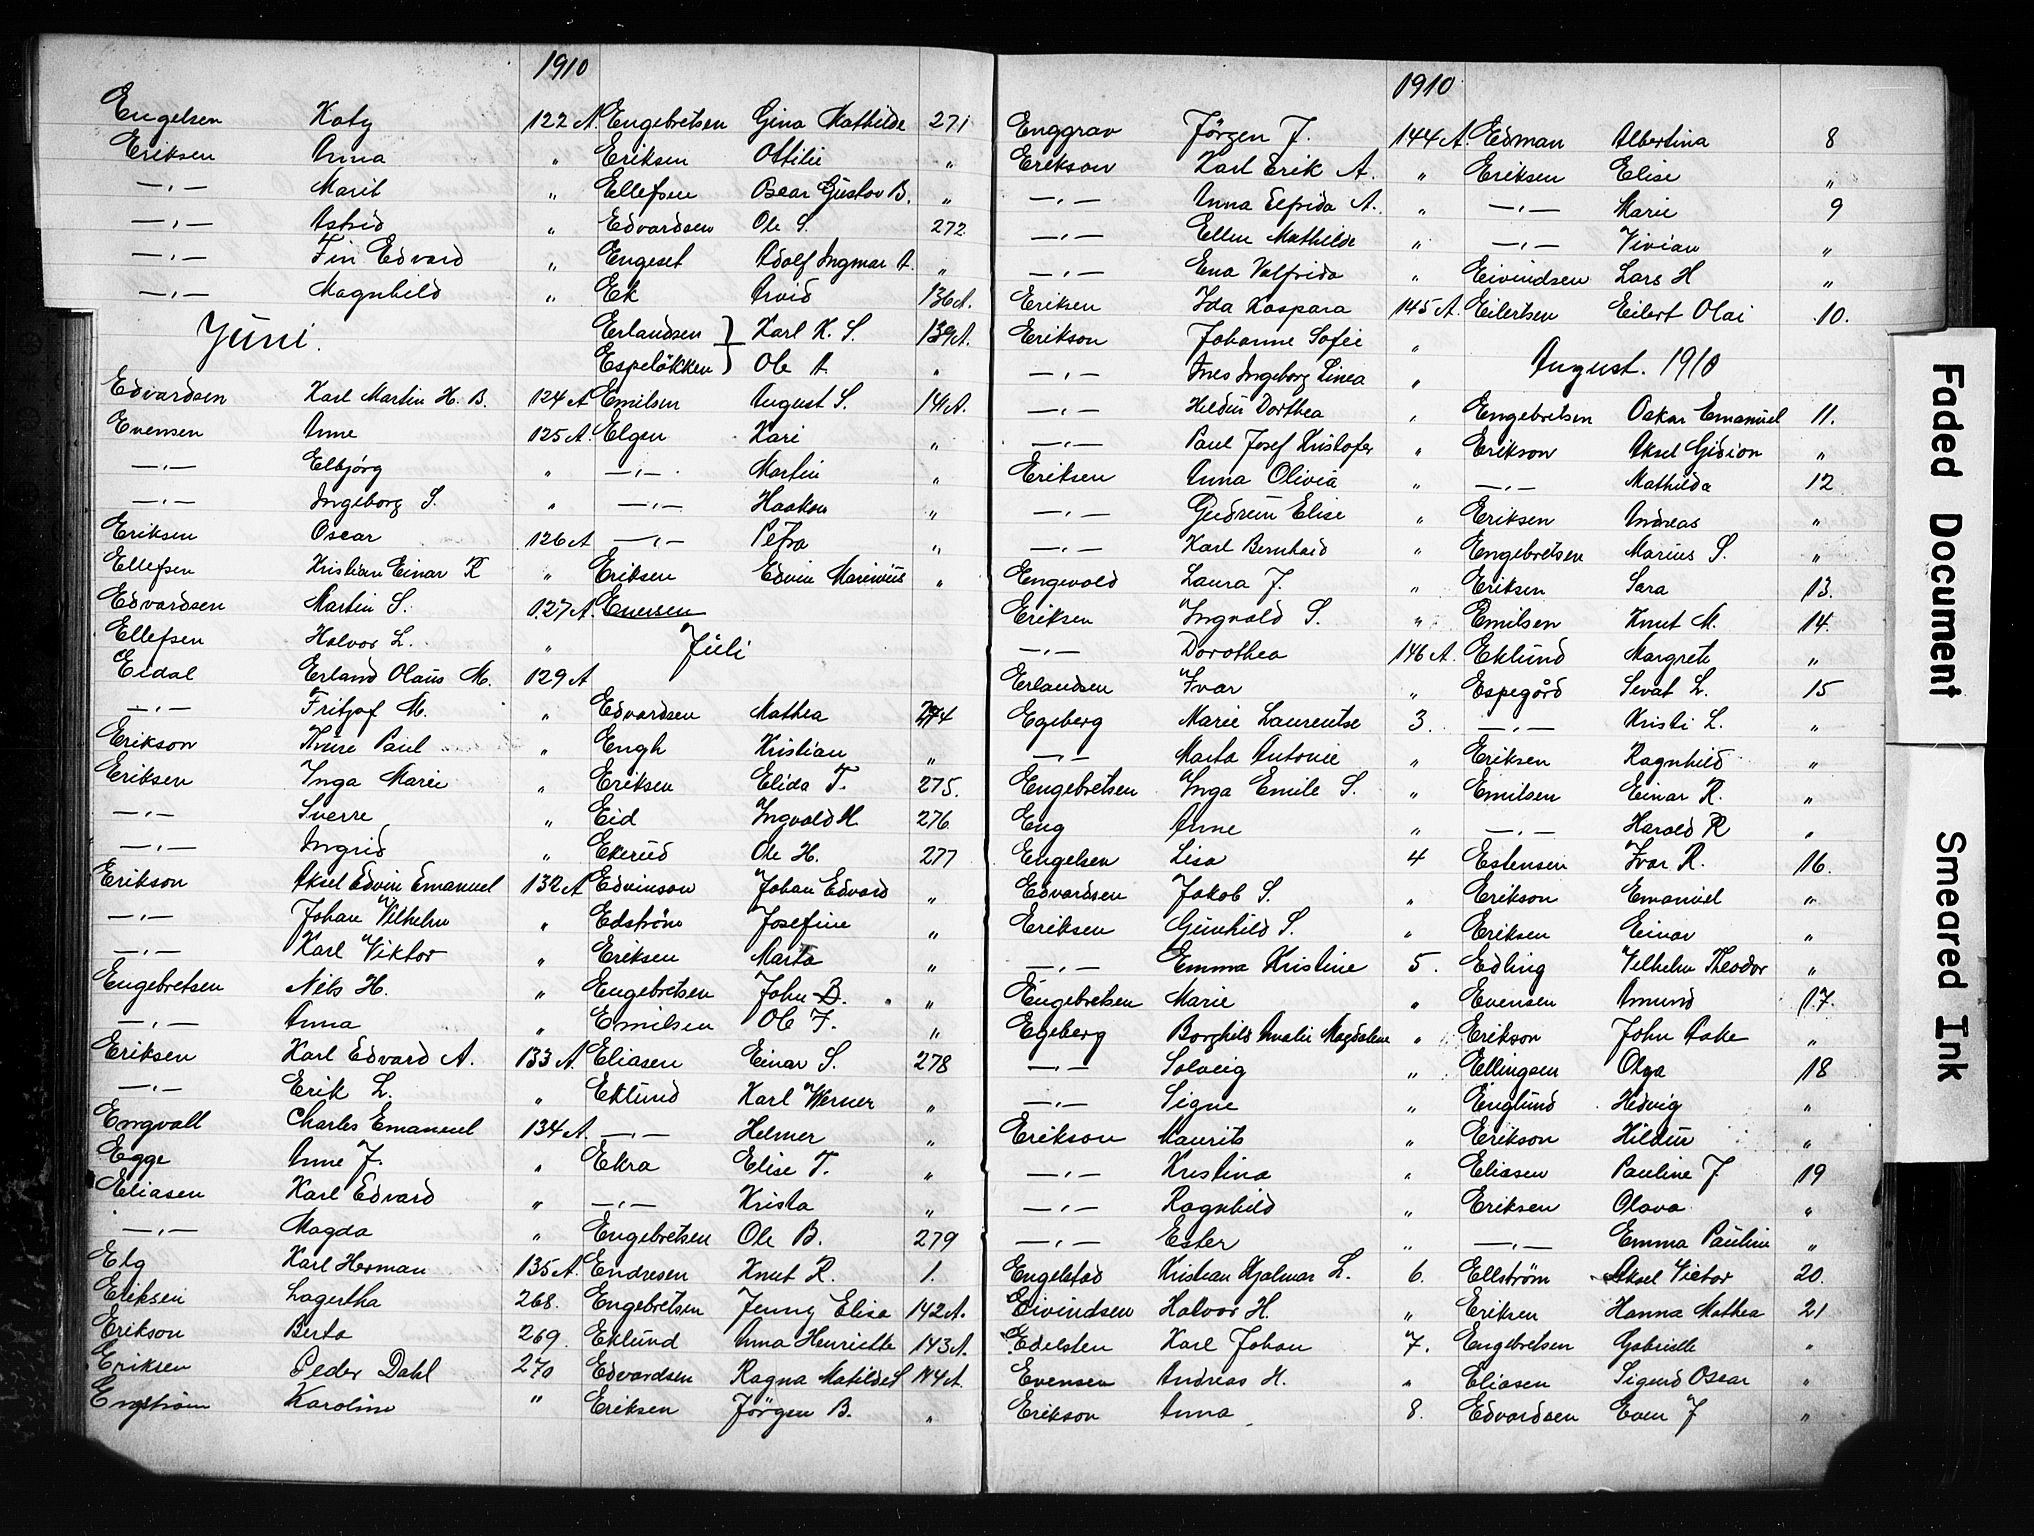 1910
Engelsen Katy 122 A.
Eriksen Anna "
—,— Marit "
—,— Astrid "
—,— Finn Edvard "
—,— Magnhild "
Juni.
Edvardsen Karl Martin H. B. 124 A
Evensen Anne 125 A.
—,— Elbjörg "
—,— Ingeborg S. "
Eriksen Oscar 126 A
Ellefsen Kristian Einar R "
Edvardsen Martin S. 127 A.
Ellefsen Halvor L. "
Eidal Erland Olaus M. 129 A
—,— Fritjof M. "
Erikson Thure Paul "
Eriksen Inga Marie "
—,— Sverre "
—,— Ingrid "
Erikson Aksel Edvin Emanuel 132 A
—,— Johan Vilhelm "
—,— Karl Viktor "
Engebretsen Nils H. "
—,— Anna "
Eriksen Karl Edvard A. 133 A.
—,— Erik L. "
Engvall Charles Emanuel 134 A.
Egge Anne J. "
Eliasen Karl Edvard "
—,— Magda "
Elg Karl Herman 135 A.
Eriksen Lagertha 268.
Erikson Berta 269.
Eriksen Peder Dahl 270
Engström Karoline "
Engebretsen Gina Mathilde 271
Eriksen Ottilie "
Ellefsen Oscar Gustav B. "
Edvardsen Ole S. 272
Engeset Adolf Ingmar A. "
Ek Arvid 136 A.
Erlandsen } Karl K. S. 139 A.
Espelökken } Ole A "
Emilsen August S. 141 A.
Elgen Kari "
—,— Martin "
—,— Haakon "
—,— Petra "
Eriksen Edvin Marinius "
Evensen
Juli
Edvardsen Mathea 274
Engh Kristian "
Eriksen Elida T. 275.
Eid Ingvald H. 276
Ekerud Ole H. 277
Edvinson Johan Edvard "
Edström Josefine "
Eriksen Marta "
Engebretsen John B. "
Emilsen Ole J. "
Eliasen Einar S. 278
Eklund Karl Werner "
—,— Helmer "
Ekra Elise T. "
—,— Krista "
Engebretsen Ole B. 279
Endresen Knut R. 1.
Engebretsen Jenny Elisa 142 A.
Eklund Anna Henriette 143 A.
Edvardsen Ragna Matilde S 144 A.
Eriksen Jörgen B. "
1910
Enggrav Jörgen J. 144 A.
Erikson Karl Erik A. "
—,— Anna Elfrida A. "
—,— Ellen Mathilde "
—,— Ena Valfrida "
Eriksen Ida Kaspara 145 A.
Erikson Johanne Sofie "
—,— Ines Ingeborg Linea "
—,— Hildur Dorthea "
—,— Paul Josef Kristofer "
Eriksen Anna Olivia "
—,— Gudrun Elise "
—,— Karl Bernhard "
Engvold Laura J. "
Eriksen Ingvald S. "
—,— Dorothea 146 A.
Erlandsen Ivar "
Egeberg Marie Laurentse 3.
—,— Marta Antonie "
Engebretsen Inga Emile S. "
Eng Anne "
Engelsen Lisa 4
Edvardsen Jakob S. "
Eriksen Gunhild S. "
—,— Emma Kristine 5.
Engebretsen Marie "
Egeberg Borghild Amalie Magdalene "
—,— Solveig "
—,— Signe "
Erikson Maurits "
—,— Kristina "
—,— Ragnhild "
—,— Ester "
Engelstad Kristian Hjalmar L. 6.
Eivindsen Halvor H. "
Edelsten Karl Johan 7.
Evensen Andreas H. "
Erikson Anna 8.
Edman Albertina 8
Eriksen Elise "
—,— Marie 9
—,— Vivian "
Eivindsen Lars H "
Eilertsen Eilert Olai 10.
August. 1910
Engebretsen Oskar Emanuel 11.
Erikson Aksel Gidion "
—,— Mathilda 12
Eriksen Andreas "
Engebretsen Marius S. "
Eriksen Sara 13.
Emilsen Knut M. 14.
Eklund Margrete "
Espegård Sevat L. 15
—,— Kristi L. "
Eriksen Ragnhild "
Emilsen Einar R. "
—,— Harald R "
Estensen Ivar R. 16.
Erikson Emanuel "
Eriksen Einar "
Edling Vilhelm Theodor "
Evensen Amund 17.
Erikson John Aake "
Ellingsen Olga 18
Englund Hedvig "
Erikson Hildur "
Eliasen Pauline J 19
Eriksen Olava "
—,— Emma Pauline "
Ellström Aksel Victor 20.
Eriksen Hanna Mathea 21
Engebretsen Gabrielle "
Eliasen Sigurd Oscar "
Edvardsen Even J "
Faded Document
Smeared Ink